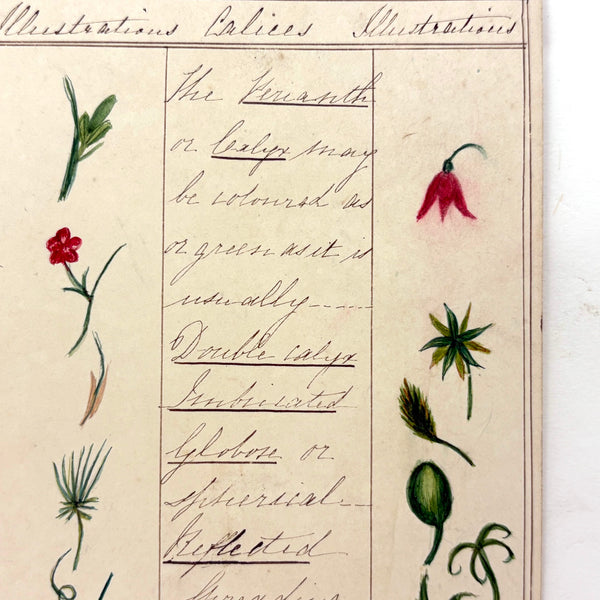 Illustrations Calices Illustrations
The Perianth
or Calyx may
be coloured as
or green as it is
usually-----
Double calyx
Imbricated
Globose or
spherical--
Reflected
Spreading